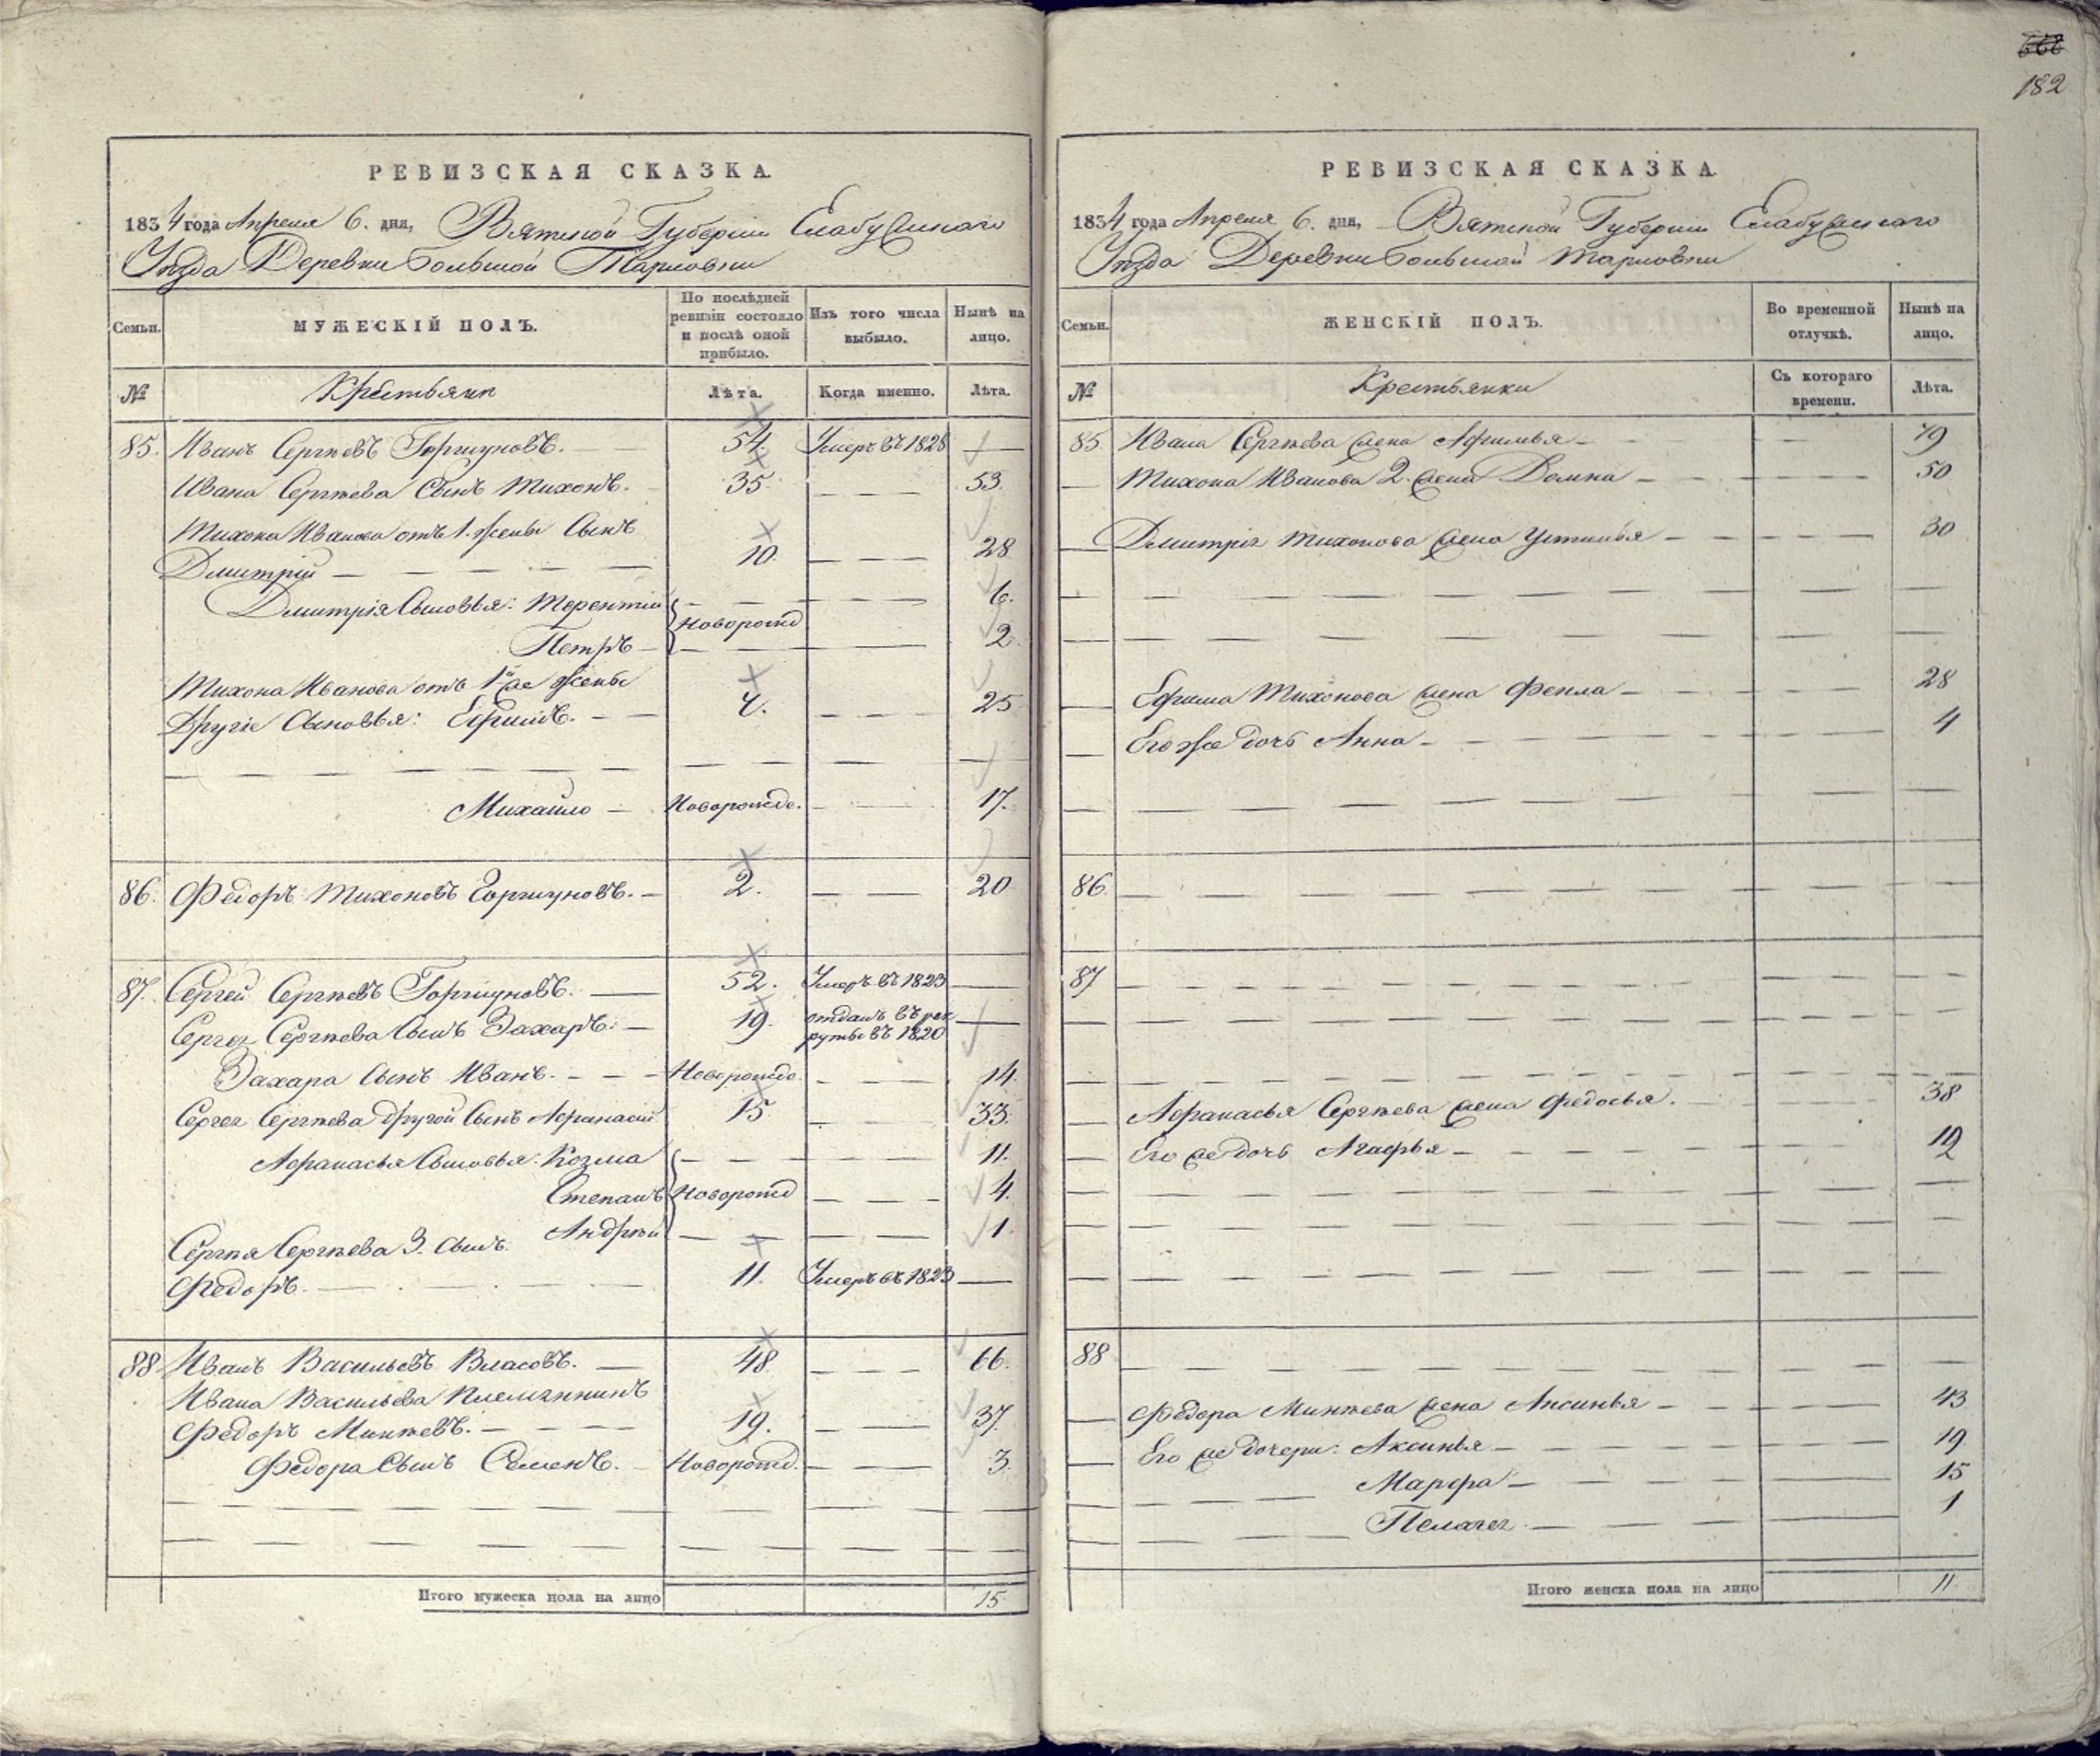 668
182
РЕВИЗСКАЯ СКАЗКА.
1834 года Апреля 6. дня, Вятской Губернiи Елабужскаго
Уѣзда Деревни Большой Тарловки
Семьи.
МУЖЕСКIЙ ПОЛЪ.
По послѣдней
ревизiи состояло
и послѣ оной
прибыло.
Изъ того числа
выбыло.
Нынѣ на
лицо.
№
Крестьяне
Лѣта.
Когда именно.
Лѣта.
85. Иванъ Сергѣевъ Горшуновъ. 54. Умеръ въ 1828 —
Ивана Сергѣева Сынъ Тихонъ. 35. 53.
Тихона Иванова отъ 1. жены Сынъ
Дмитрiй 10. 28
Дмитрiя Сыновья: Терентiй 6.
Новорожд
Петръ 2.
Тихона Иванова отъ 1й же жены
Другiе Сыновья: Ефимъ. 7. 25
Михайло Новорожде. 17.
86. Федоръ Тихоновъ Горшуновъ. 2. 20
87. Сергей Сергѣевъ Горшуновъ. 52. Умеръ въ 1823
Сергея Сергѣева Сынъ Захаръ. 19. отданъ въ рек
руты въ 1820
Захара Сынъ Иванъ. Новорожде. 14.
Сергея Сергѣева другой Сынъ Афанасiй 15 33.
Афанасья Сыновья: Козма 11.
Степанъ Новорожд 4.
Андрѣй 1.
Сергѣя Сергѣева 3. сынъ
Федоръ. 11. Умеръ въ 1823
88 Иванъ Васильевъ Власовъ. 48 66.
Ивана Васильева Племянникъ
Федоръ Минѣевъ. 19. 37.
Федора Сынъ Семенъ. Новорожд. 3.
Итого мужеска пола на лицо 15
РЕВИЗСКАЯ СКАЗКА.
1834 года Апреля 6. дня, Вятской Губернiи Елабужскаго
Уѣзда Деревни Большой Тарловки
Семьи.
ЖЕНСКIЙ ПОЛЪ.
Во временной
отлучкѣ.
Нынѣ на
лицо.
№
Крестьянки
Съ котораго
времени.
Лѣта.
85. Ивана Сергѣева жена Афимья 79
Тихона Иванова 2. жена Домна 50
Дмитрiя Тихонова жена Устинья 30
Ефима Тихонова жена Фекла 28
Его же дочь Анна 4
86.
87
Афанасья Сергѣева жена Федосья. 38
Его же дочь Агафья 12
88
Федора Минѣева жена Аксинья 43
Его же дочери: Аксинья 19
Марфа 15
Пелагея 1
Итого женска пола на лицо 11